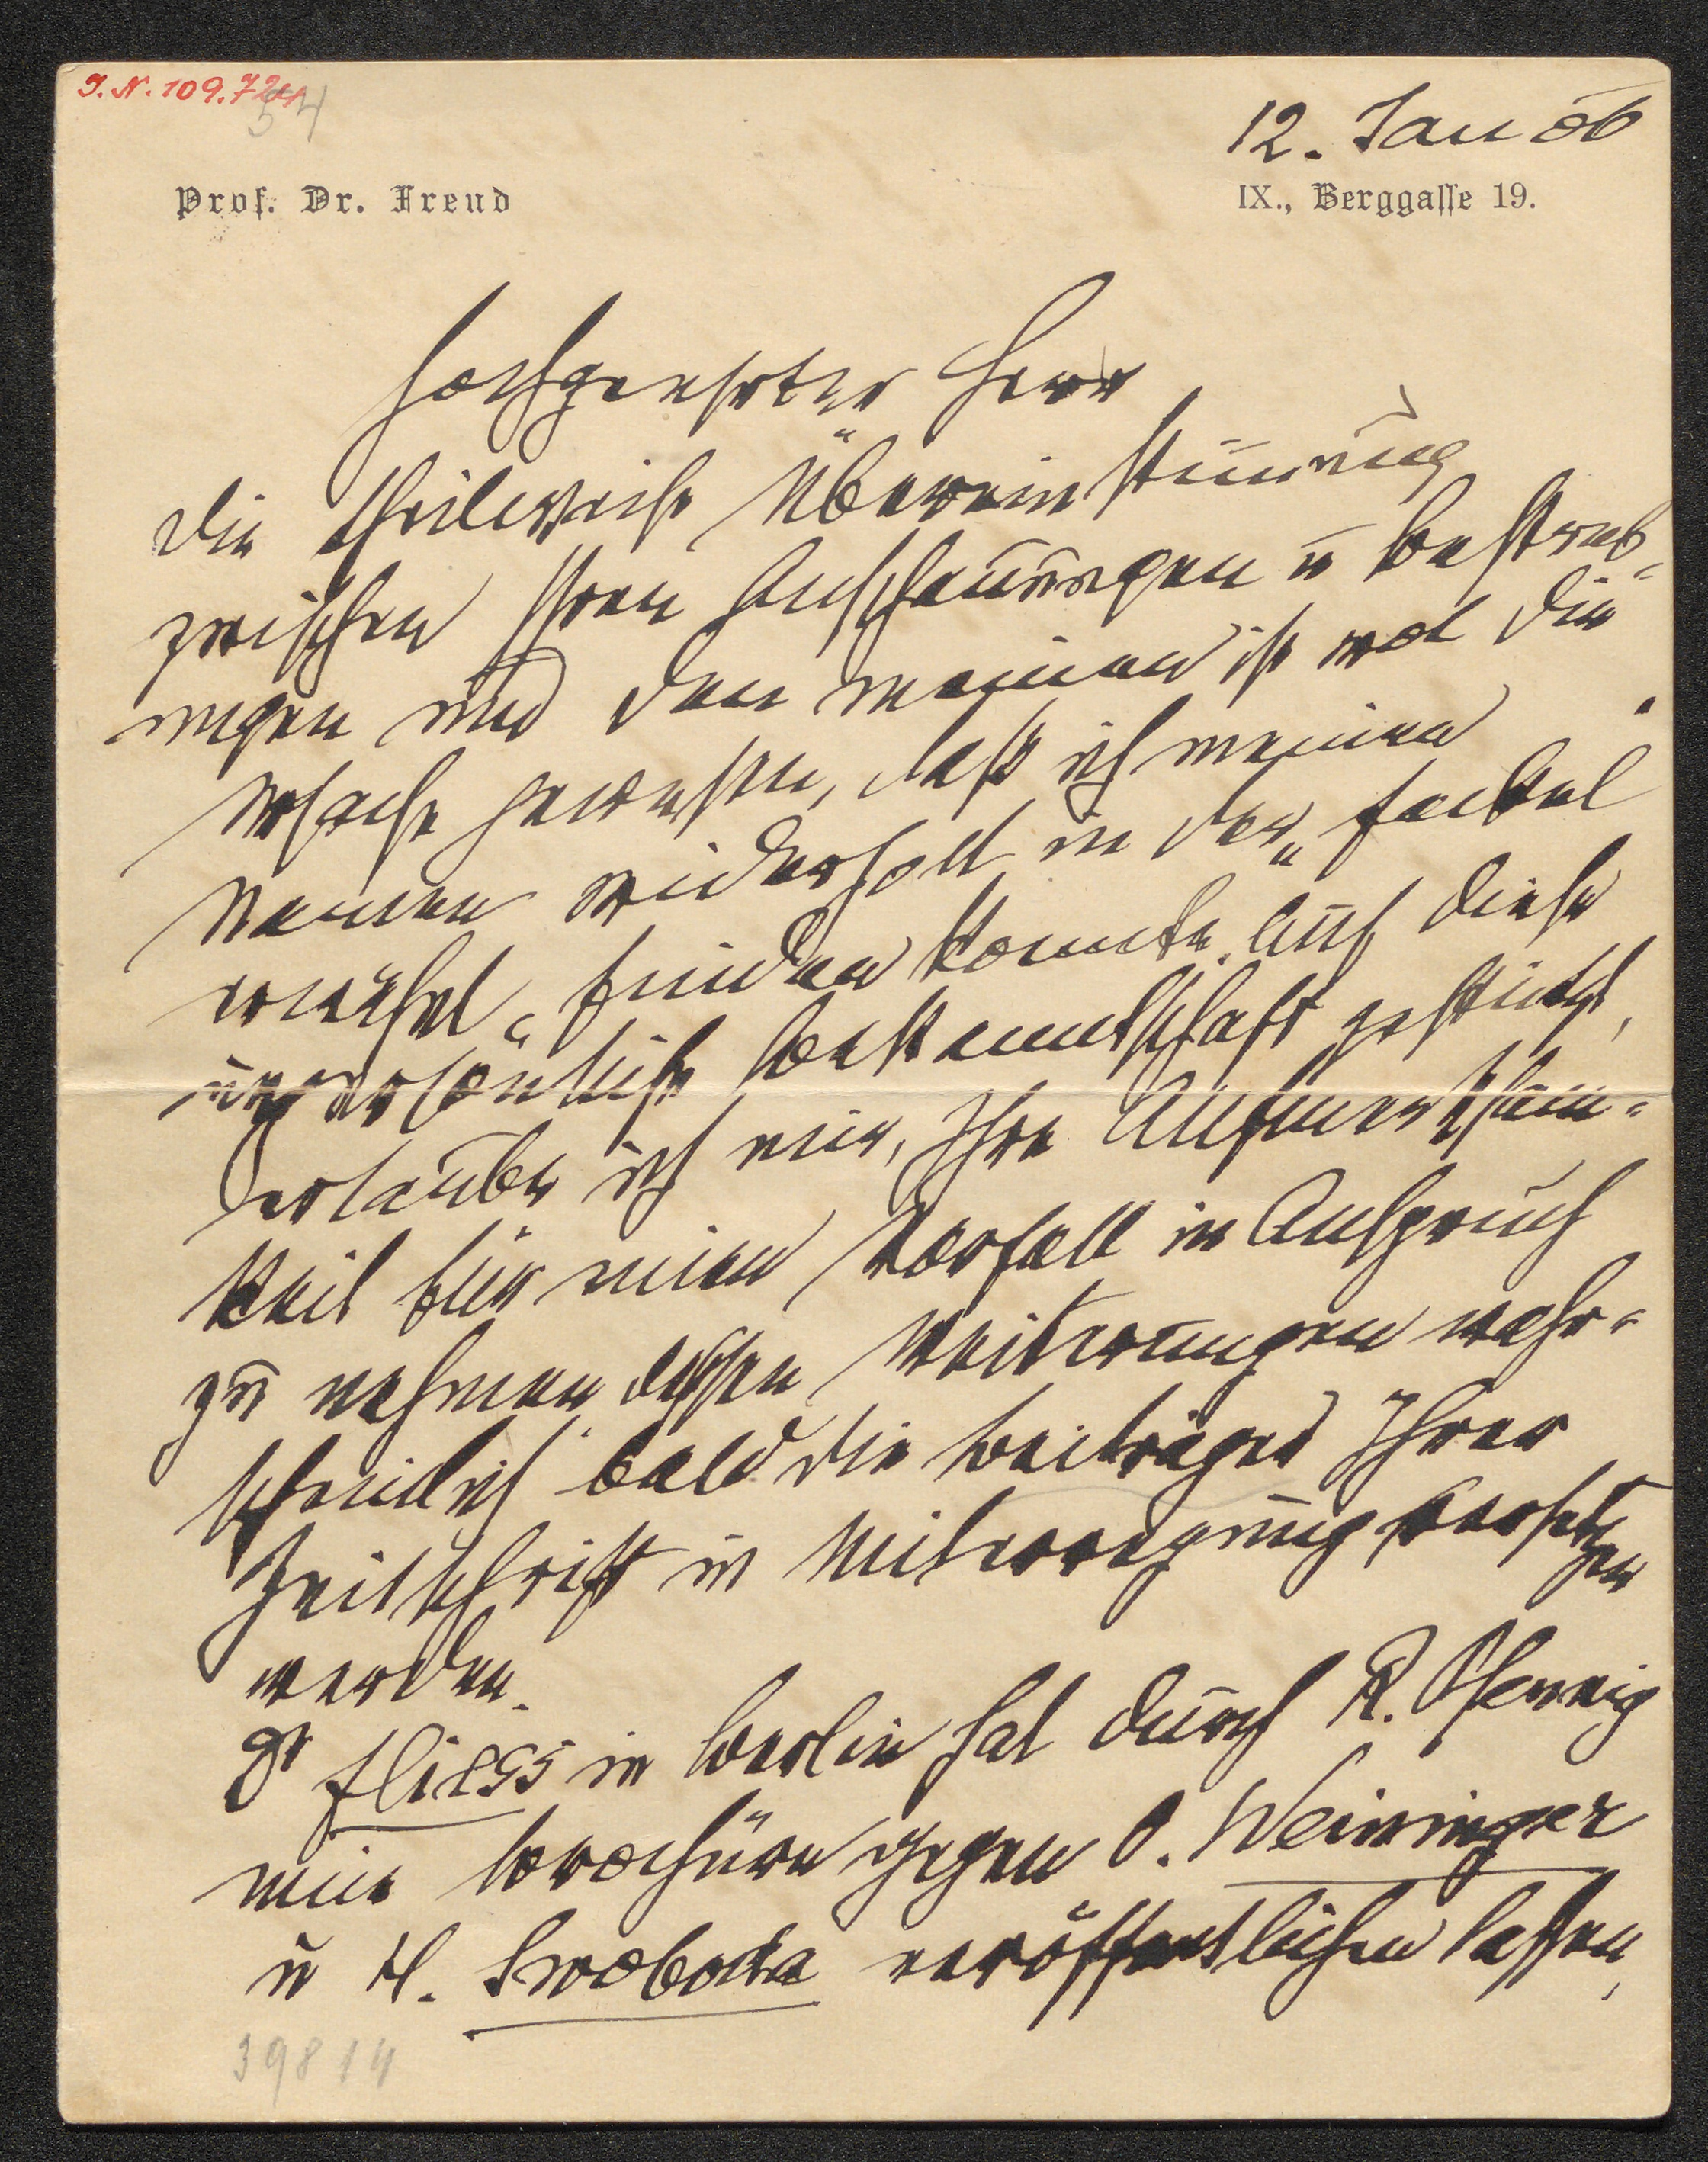 I.N. 109.724
54
12. Jan 06
Prof. Dr. Freud
IX., Berggasse 19.
Hochgeehrter Herr
Die theilweise Übereinstimmung
zwischen Ihren Anschauungen u Bestreb-
ungen und den meinen ist wol die
Ursache gewesen, daß ich meinen
Namen wiederholt in der „Fackel“
erwähnt finden konnte. Auf diese
unpersönliche Bekanntschaft gestützt,
erlaube ich mir, Ihre Aufmerksam-
keit für einen Vorfall in Anspruch
zu nehmen, dessen Weiterungen wahr-
scheinlich bald die Beiträger Ihrer
Zeitschrift in Miterregung versetzen
werden.
Dr Fliess in Berlin hat durch R. Pfennig
eine Brochüre gegen O. Weininger
u H. Swoboda veröffentlichen lassen,
39814